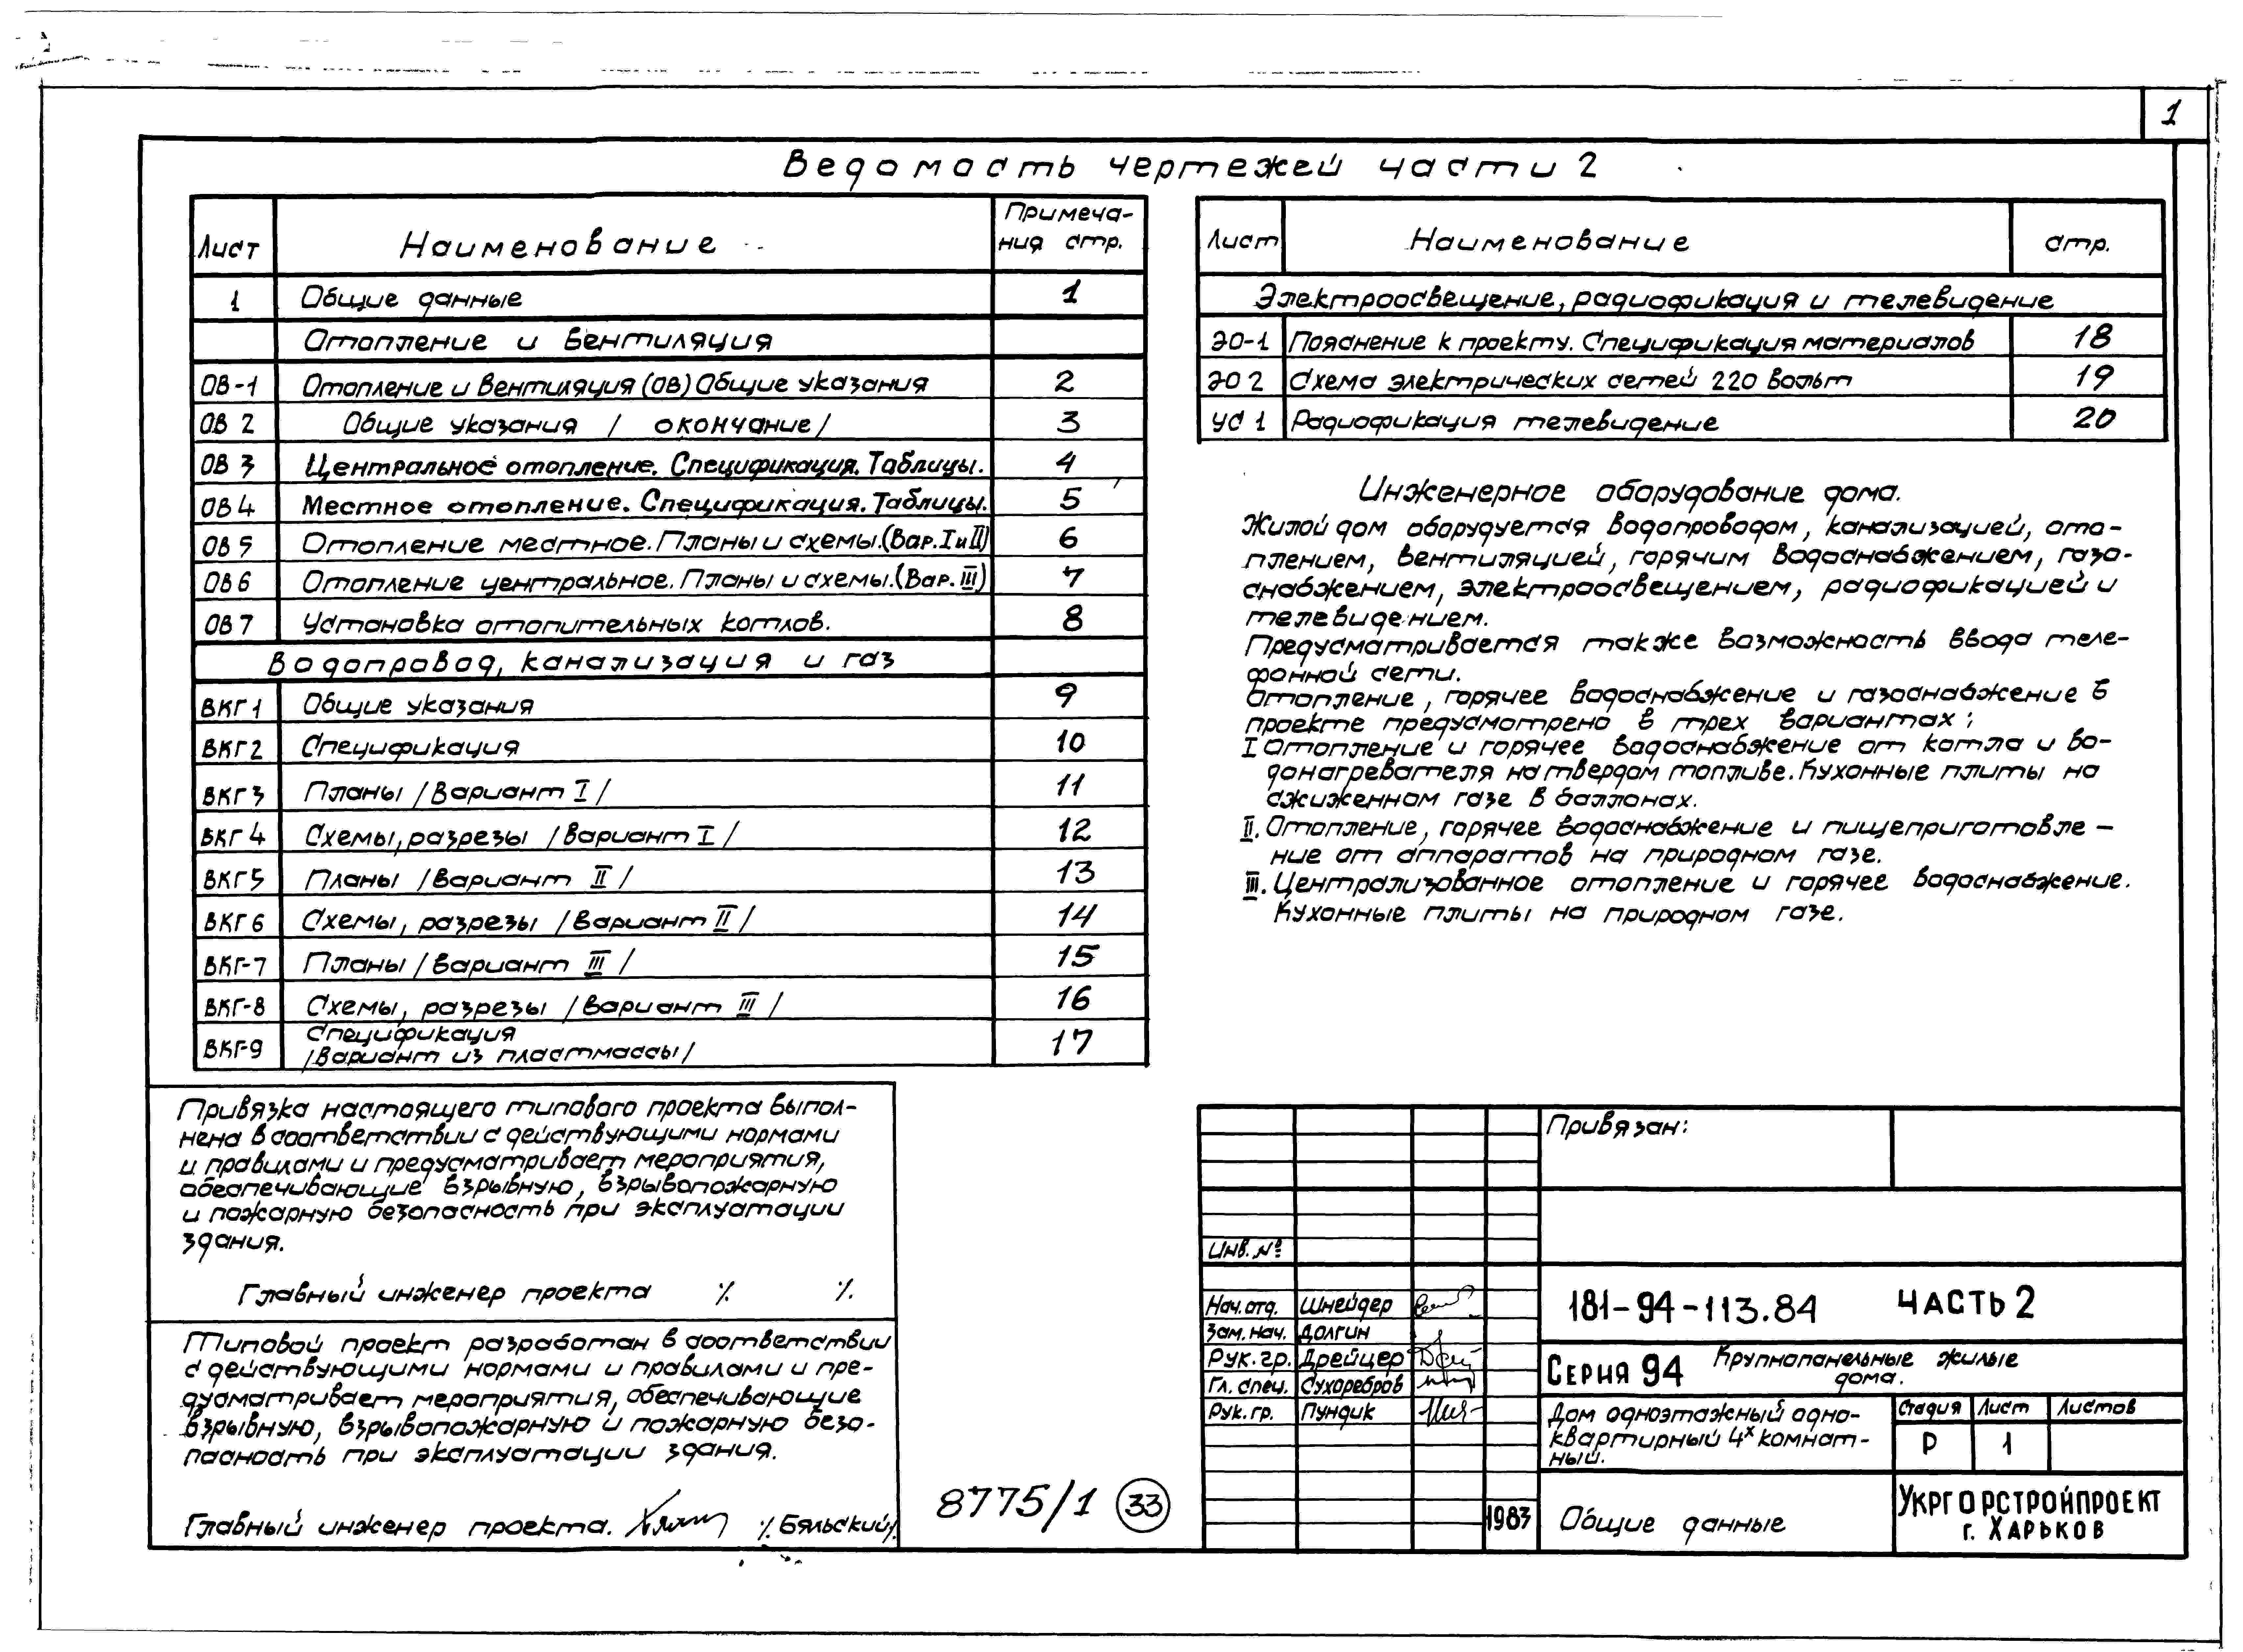 1
Ведомость чертежей части 2
Лист Наименование Примеча-
ния стр.
1 Общие данные 1
Отопление и вентиляция
ОВ-1 Отопление и вентиляция (ОВ) Общие указания 2
ОВ 2 Общие указания / окончание/ 3
ОВ 3 Центральное отопление. Спецификация. Таблицы. 4
ОВ 4 Местное отопление. Спецификация. Таблицы. 5
ОВ 5 Отопление местное. Планы и схемы. (Вар. I и II) 6
ОВ 6 Отопление центральное. Планы и схемы. (Вар. III) 7
ОВ 7 Установка отопительных котлов. 8
Водопровод, канализация и газ
ВКГ 1 Общие указания 9
ВКГ 2 Спецификация 10
ВКГ 3 Планы /Вариант I/ 11
ВКГ 4 Схемы, разрезы /Вариант I/ 12
ВКГ 5 Планы /Вариант II/ 13
ВКГ 6 Схемы, разрезы /Вариант II/ 14
ВКГ-7 Планы /Вариант III/ 15
ВКГ-8 Схемы, разрезы /Вариант III/ 16
ВКГ-9 Спецификация
/Вариант из пластмассы/ 17
Лист Наименование стр.
Электроосвещение, радиофикация и телевидение
ЭО-1 Пояснение к проекту. Спецификация материалов 18
ЭО 2 Схема электрических сетей 220 вольт 19
УС 1 Радиофикация телевидение 20
Инженерное оборудование дома.
Жилой дом оборудуется водопроводом, канализацией, ото-
плением, вентиляцией, горячим водоснабжением, газо-
снабжением, электроосвещением, радиофикацией и
телевидением.
Предусматривается также возможность ввода теле-
фонной сети.
Отопление, горячее водоснабжение и газоснабжение в
проекте предусмотрено в трех вариантах:
I Отопление и горячее водоснабжение от котла и во-
донагревателя на твердом топливе. Кухонные плиты на
сжиженном газе в баллонах.
II. Отопление, горячее водоснабжение и пищеприготовле-
ние от аппаратов на природном газе.
III. Централизованное отопление и горячее водоснабжение.
Кухонные плиты на природном газе.
Привязка настоящего типового проекта выпол-
нена в соответствии с действующими нормами
и правилами и предусматривает мероприятия,
обеспечивающие взрывную, взрывопожарную
и пожарную безопасность при эксплуатации
здания.
Главный инженер проекта /. /.
Типовой проект разработан в соответствии
с действующими нормами и правилами и пре-
дусматривает мероприятия, обеспечивающие
взрывную, взрывопожарную и пожарную безо-
пасность при эксплуатации здания.
Главный инженер проекта. /. Бяльский/.
8775/1 33
Привязан:
Инв. №
Нач. отд. Шнейдер
Зам. нач. Долгин
Рук. гр. Дрейцер
Гл. спец. Сухоребров
Рук. гр. Пундик
1983
181-94-113.84 ЧАСТЬ 2
Серия 94 Крупнопанельные жилые
дома.
Дом одноэтажный одно-
квартирный 4х комнат-
ный.
Стадия Лист Листов
Р 1
Общие данные
УКРГОРСТРОЙПРОЕКТ
г. ХАРЬКОВ